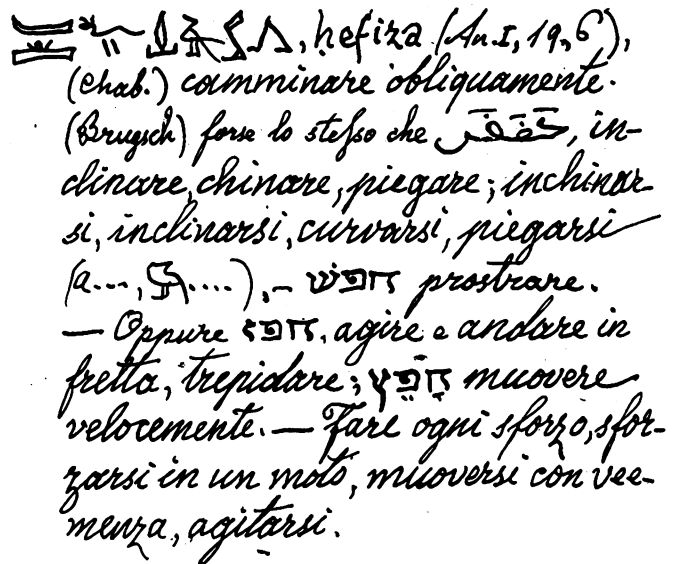 , ḥefiza (An. I, 19, 6),
(Chab.) camminare obliquamente.
(Brugsch) forse lo stesso che خفض, in-
clinare, chinare, piegare; inchinar
si, inclinarsi, curvarsi, piegarsi
(a..., ....), — חפש prostrare.
— Oppure חפז, agire e andare in
fretta, trepidare; חָפֵץ muovere
velocemente. — Fare ogni sforzo, sfor-
zarsi in un moto, muoversi con vee-
menza, agitarsi.